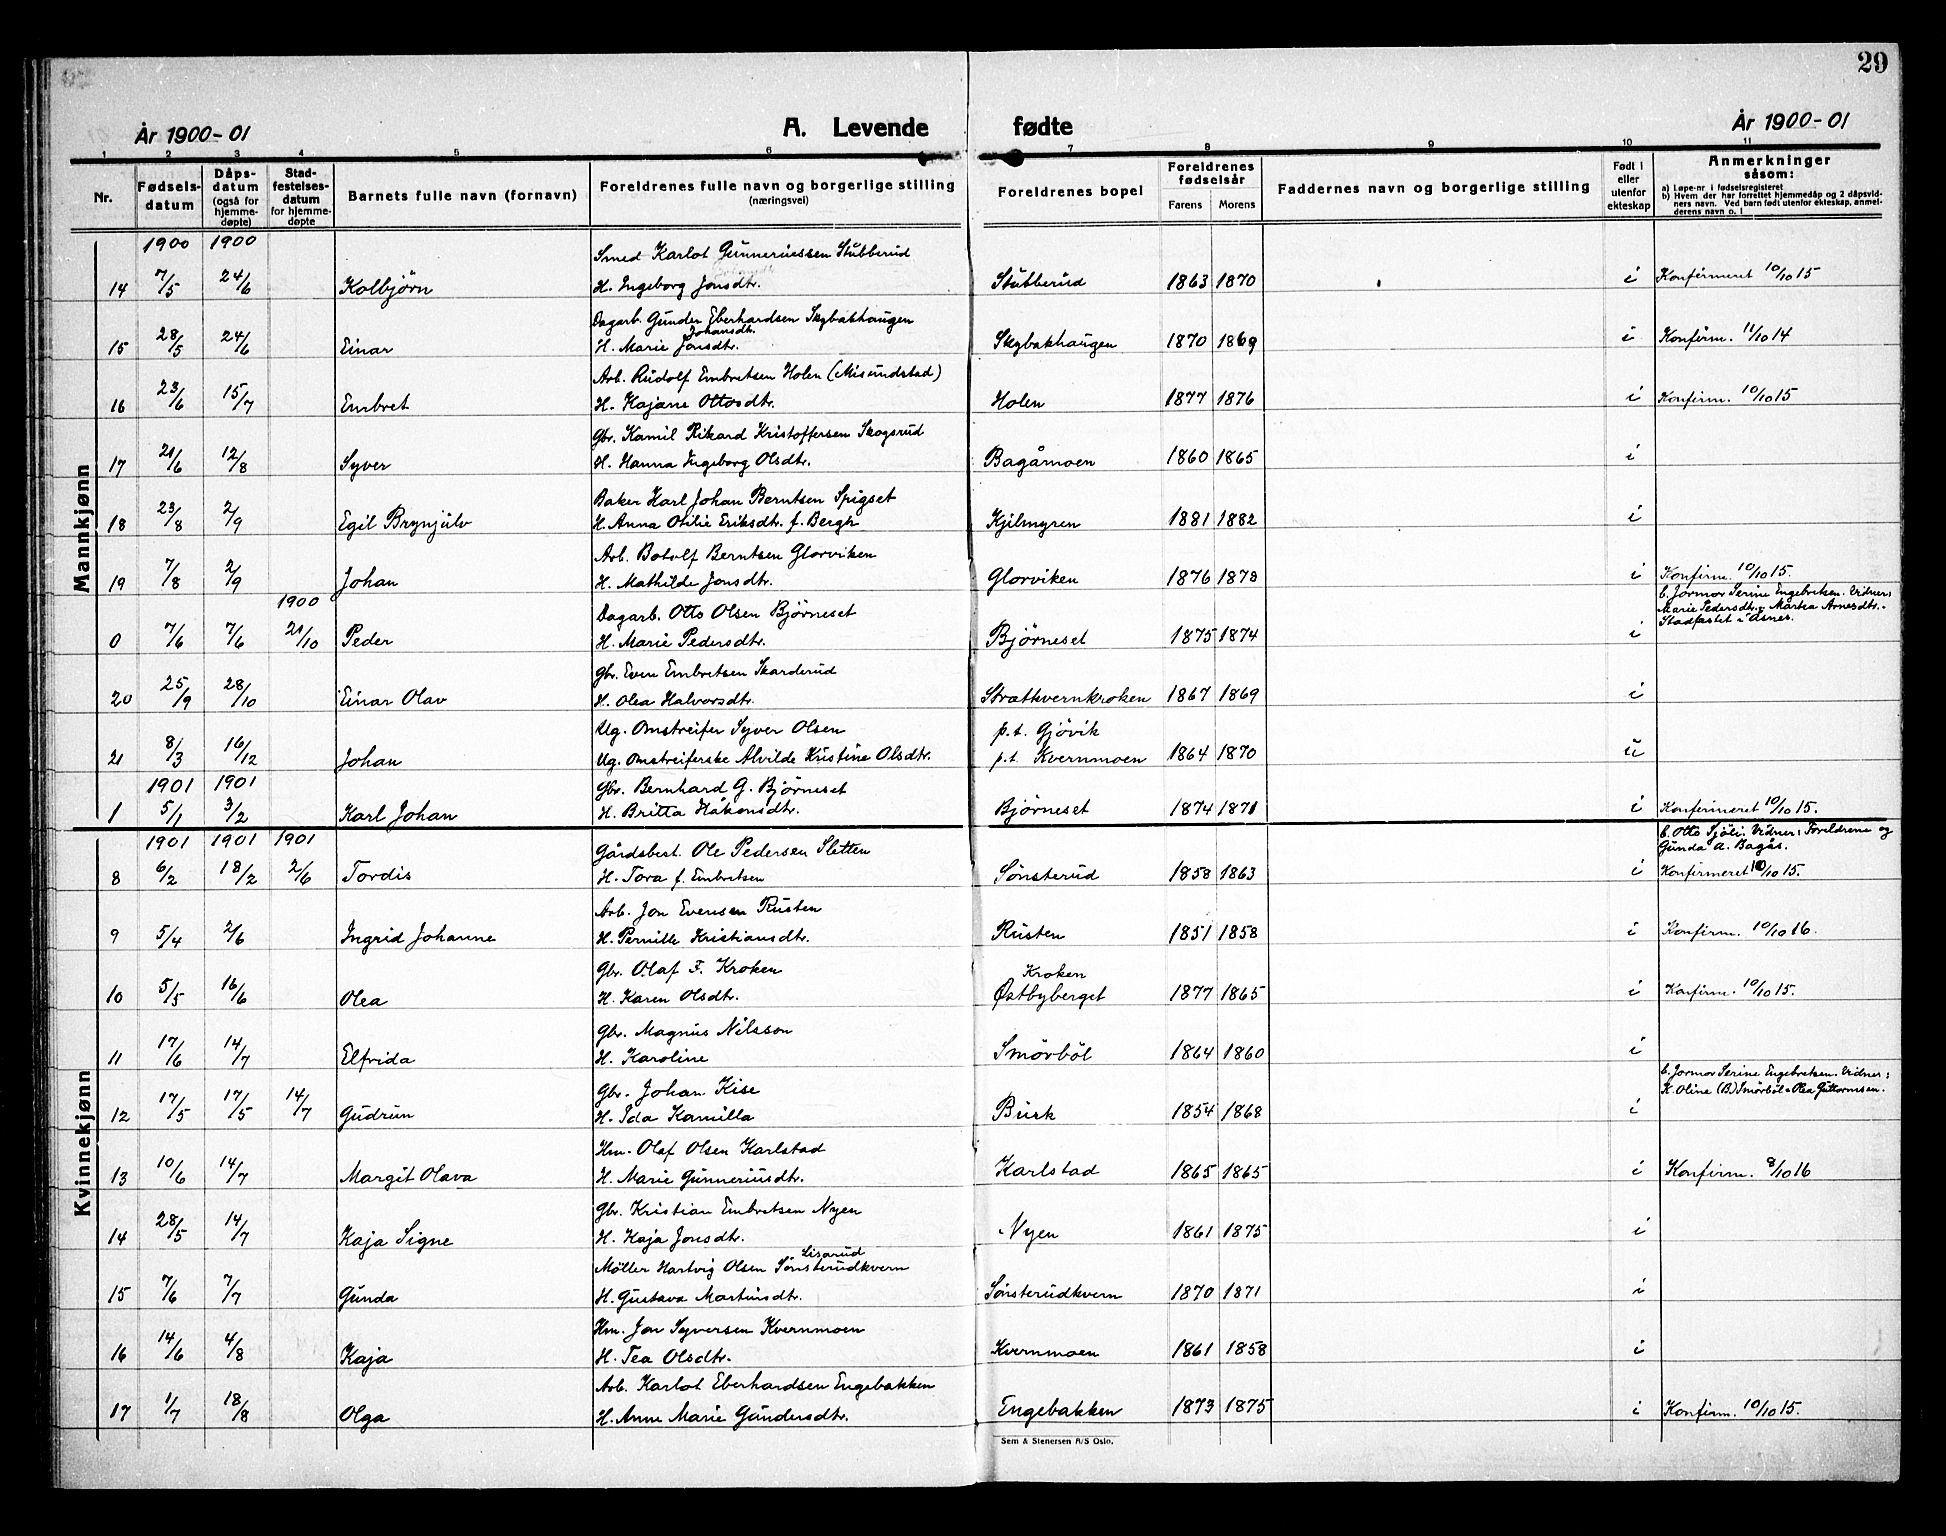 29
År 1900-01 A. Levende fødte År 1900-01
1 2 3 4 5 6 7 8 9 10 11
Nr. Fødsels-datum Dåps-datum (også for hjemme-døpte) Stad-festelses-datum for hjemme-døpte Barnets fulle navn (fornavn) Foreldrenes fulle navn og borgerlige stilling (næringsvei) Foreldrenes bopel Foreldrenes fødselsår Farens Morens Faddernes navn og borgerlige stilling Født i eller utenfor ekteskap Anmerkninger såsom:
a) Løpe-nr i fødselsregisteret
b) Hvem der har forrettet hjemmedåp og 2 dåpsvidners navn. Ved barn født utenfor ekteskap, anmelderens navn o. l
Mannkjønn
1900 1900
Smed Karlot Gunneriussen Stubberud
14 7/5 24/6 Kolbjørn H. Ingeborg Jonsdtr. Stubberud 1863 1870 i Konfirmeret 10/10 15
Dagarb. Gunder Eberhardsen Skybakhaugen
Johansdtr.
15 28/5 24/6 Einar H. Marie Jonsdtr. Skybakhaugen 1870 1869 i Konfirm. 11/10 14
Arb. Rudolf Embretsen Holen (Misundstad)
16 23/6 15/7 Embret H. Kajane Ottosdtr. Holen 1877 1876 i Konfirm. 10/10 15
Gbr. Kamil Rikard Kristoffersen Skogsrud
17 21/6 12/8 Syver H. Hanna Ingeborg Olsdtr. Bagåmoen 1860 1865 i
Baker Karl Johan Berntsen Spigset
18 23/8 2/9 Egil Brynjulv H. Anna Otilie Eriksdt. f. Bergh Kjilmyren 1881 1882 i
Arb. Botolf Berntsen Glorviken
19 7/8 2/9 Johan H. Mathilde Jonsdtr. Glorviken 1876 1878 i Konfirm. 10/10 15.
1900
Dagarb. Otto Olsen Bjørneset
b. Jormor Serine Engebretsen. Vidner:
Marie Pedersdtr. & Martea Arnesdtr.
Stadfæstet i Åsnes.
0 7/6 7/6 21/10 Peder H. Marie Pedersdtr. Bjørneset 1875 1874 i
Gbr. Even Embretsen Skarderud
20 25/9 28/10 Einar Olav H. Olea Halvorsdtr. Strætkvernkroken 1867 1869 i
Ug. Omstreifer Syver Olsen p.t. Gjøvik
21 8/3 16/12 Johan Ug. Omstreiferske Alvilde Kristine Olsdtr. p.t. Kvernmoen 1864 1870 u
1901 1901
Gbr. Bernhard G. Bjørneset
1 5/1 3/2 Karl Johan H. Britta Håkonsdtr. Bjørneset 1874 1871 i Konfirmeret 10/10 15.
Kvinnekjønn
1901 1901 1901
Gårdsbest. Ole Pedersen Sletten
b. Otto Sjöli. Vidner: Foreldrene og
Gunda A. Bagås.
8 6/2 18/2 2/6 Tordis H. Tora f. Embretsen Sønsterud 1858 1863 i Konfirmeret 10/10 15.
Arb. Jon Evensen Rusten
9 5/4 2/6 Ingrid Johanne H. Pernille Kristiansdtr. Rusten 1851 1858 i Konfirm. 10/10 16.
Gbr. Olaf F. Kroken Kroken
10 5/5 16/6 Olea H. Karen Olsdtr. Østbyberget 1877 1865 i Konfirm. 10/10 15.
Gbr. Magnus Nilsson
11 17/6 14/7 Elfrida H. Karoline Smörböl 1864 1860 i
Gbr. Johan Kise
b. Jormor Serine Engebretsen. Vidner:
K. Oline (B) Smörböl & Olea Guttormsen.
12 17/5 17/5 14/7 Gudrun H. Ida Kamilla Busk 1854 1868 i
Hm. Olaf Olsen Karlstad
13 10/6 14/7 Margit Olava H. Marie Gunneriusdtr. Karlstad 1865 1865 i Konfirm. 8/10 16
Gbr. Kristian Embretsen Nyen
14 28/5 14/7 Kaja Signe H. Kaja Jonsdtr. Nyen 1861 1875 i
Lisarud
Møller Hartvig Olsen Sønsterudkvern
15 7/6 7/7 Gunda H. Gustava Martinsdtr. Sønsterudkvern 1870 1871 i
Hm. Jon Syversen Kvernmoen
16 14/6 4/8 Kaja H. Tea Olsdtr. Kvernmoen 1861 1858 i
Arb. Karlot Eberhardsen Engebakken
17 1/7 18/8 Olga H. Anne Marie Gundersdtr. Engebakken 1873 1875 i Konfirm. 10/10 15.
Sem & Stenersen A/S Oslo.